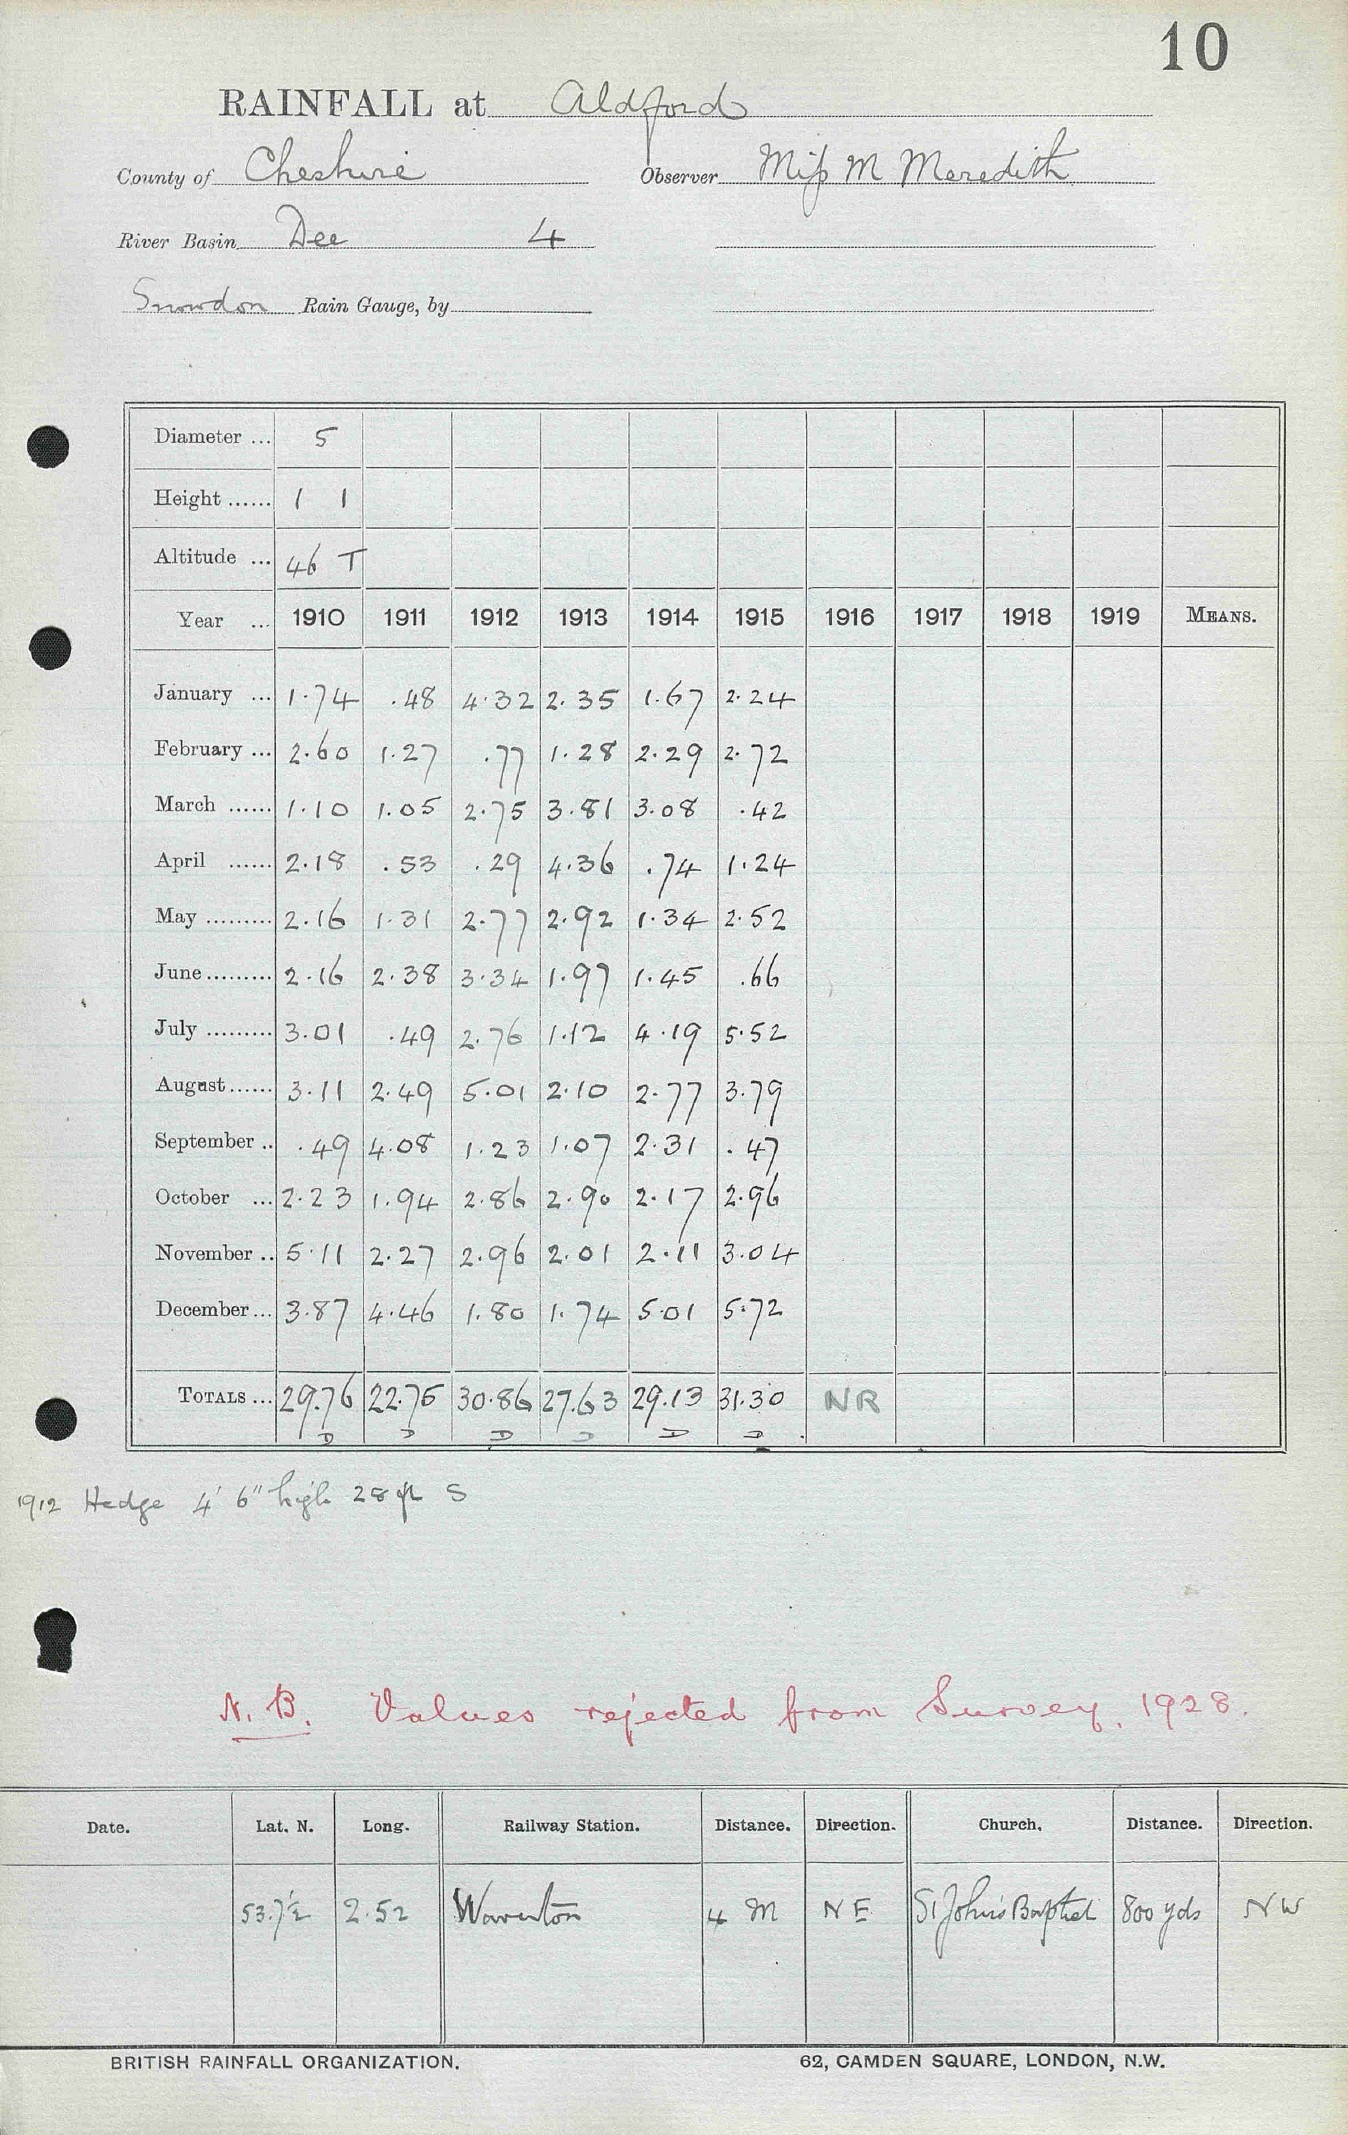 10
RAINFALL at Aldford
County of Cheshire Observer Miss M Meredith
River Basin Dee 4
Snowdon Rain Gauge, by
Diameter ... 5
Height ...... 1 1
Altitude ... 46 T
Year ... 1910 1911 1912 1913 1914 1915 1916 1917 1918 1919 MEANS.
January ... 1.74 .48 4.32 2.35 1.67 2.24
February ... 2.60 1.27 .77 1.28 2.29 2.72
March ...... 1.10 1.05 2.75 3.81 3.08 .42
April ...... 2.18 .53 .29 4.36 .74 1.24
May ......... 2.16 1.31 2.77 2.92 1.34 2.52
June ......... 2.16 2.38 3.34 1.97 1.45 .66
July ......... 3.01 .49 2.76 1.12 4.19 5.52
August ...... 3.11 2.49 5.01 2.10 2.77 3.79
September .. .49 4.08 1.23 1.07 2.31 .47
October ... 2.23 1.94 2.86 2.90 2.17 2.96
November .. 5.11 2.27 2.96 2.01 2.11 3.04
December ... 3.87 4.46 1.80 1.74 5.01 5.72
TOTALS ... 29.76 22.75 30.86 27.63 29.13 31.30 NR
D D D D D D
1912 Hedge 4' 6" high 28 ft S
N.B. Values rejected from Survey, 1928.
Date. Lat. N. Long. Railway Station. Distance. Direction. Church. Distance. Direction.
53.7½ 2.52 Waverton 4 M NE St John's Baptist 800 yds NW
BRITISH RAINFALL ORGANIZATION. 62, CAMDEN SQUARE, LONDON, N.W.